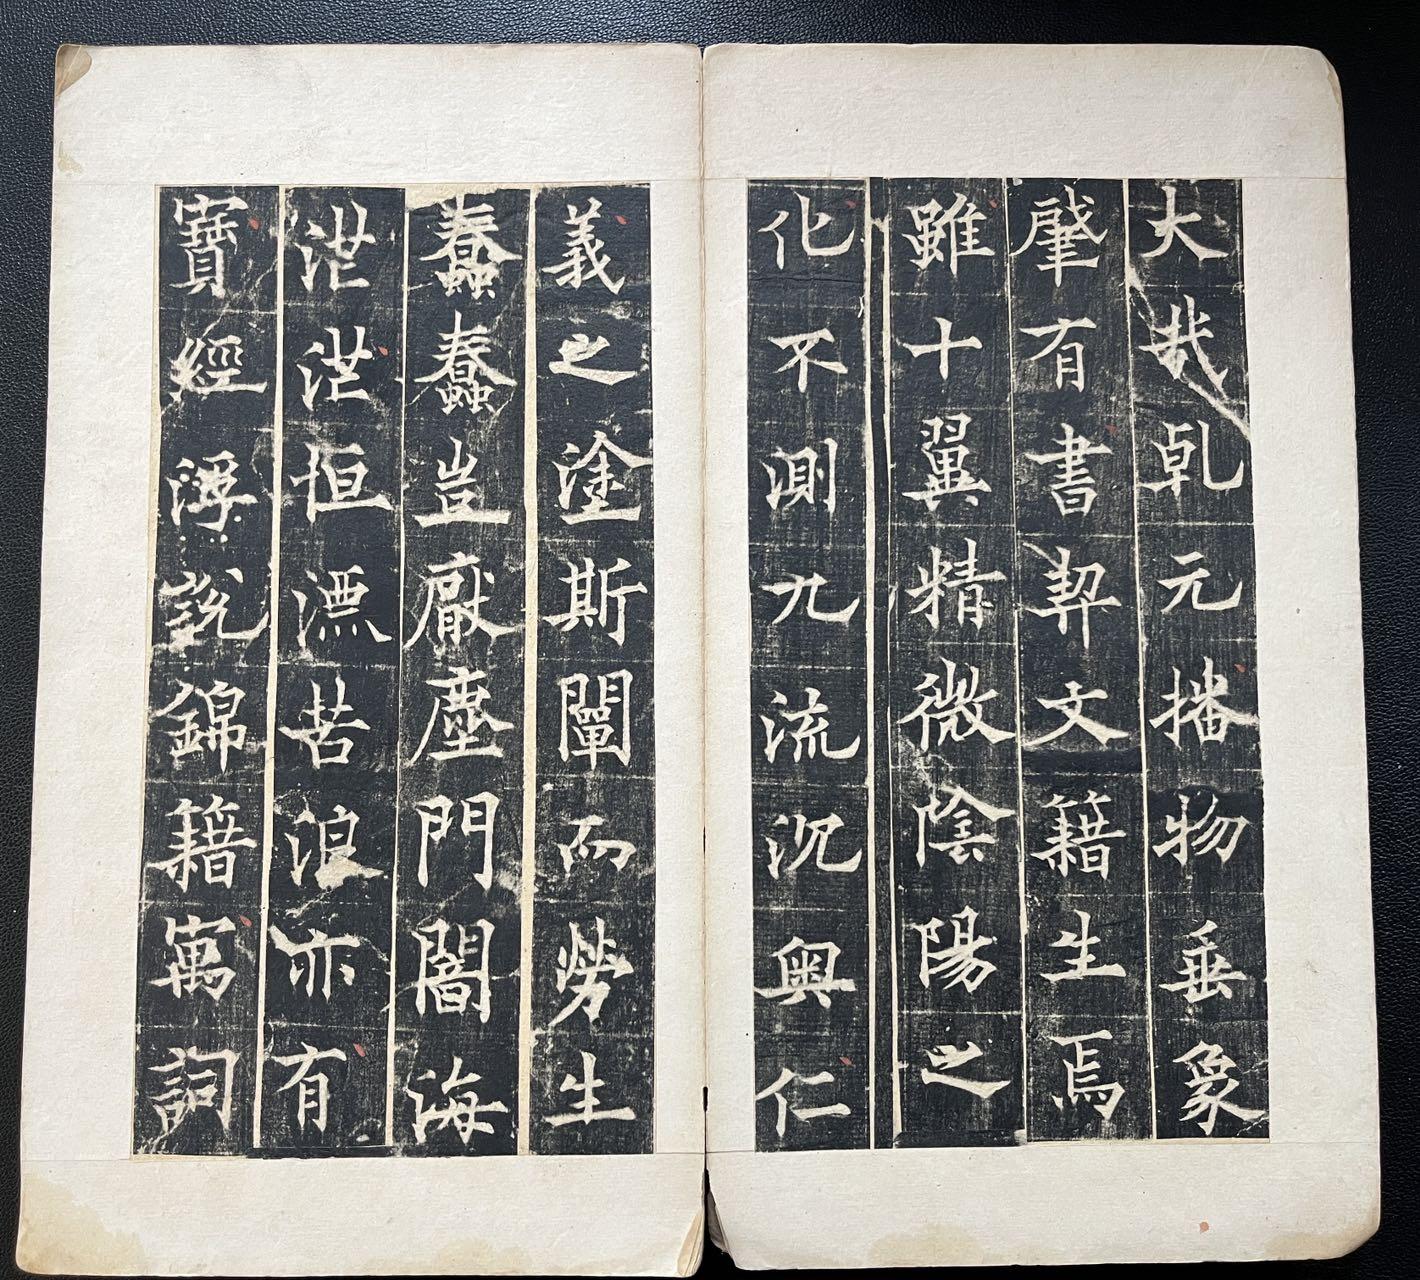 大哉乹元播物垂象
肇有書契文籍生焉
雖十翼精微陰陽之
化不測九流沉奥仁
義之塗斯闡而勞生
蠢蠢豈厰塵門闇海
泄泄恒漂苦浪亦有
寶經浮說錦籍寓詞